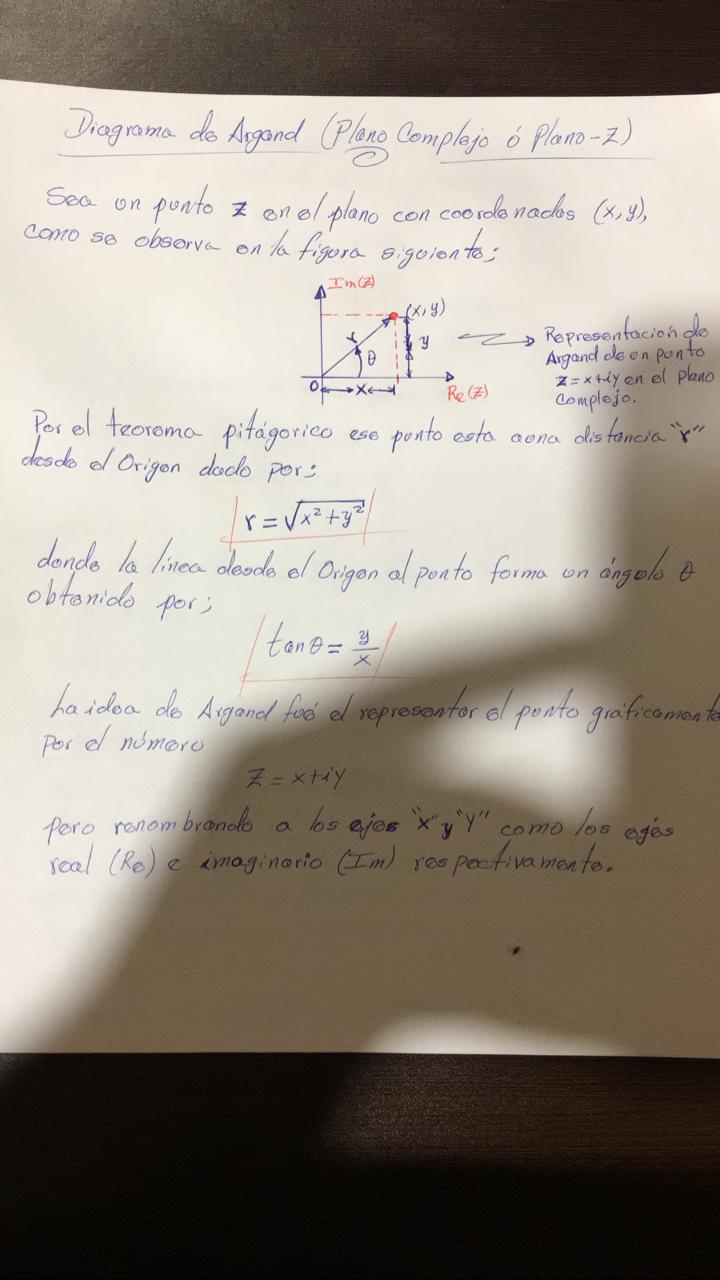 Diagrama de Argand (Plano Complejo ó Plano-Z)
Sea un punto z en el plano con coordenadas (x,y),
como se observa en la figura siguiente;
Im(z)
(x,y)
r
θ
y
O
x
Re(z)
Representación de
Argand de un punto
z=x+iy en el plano
Complejo.
Por el teorema pitágorico ese punto esta auna distancia "r"
desde el Origen dado por;
r = √x²+y²
donde la línea desde el Origen al punto forma un ángulo θ
obtenido por;
tanθ = y/x
La idea de Argand fué el representar el punto gráficamente
por el número
Z = x+iy
pero renombrando a los ejes "x" y "Y" como los ejés
real (Re) e imaginario (Im) respectivamente.